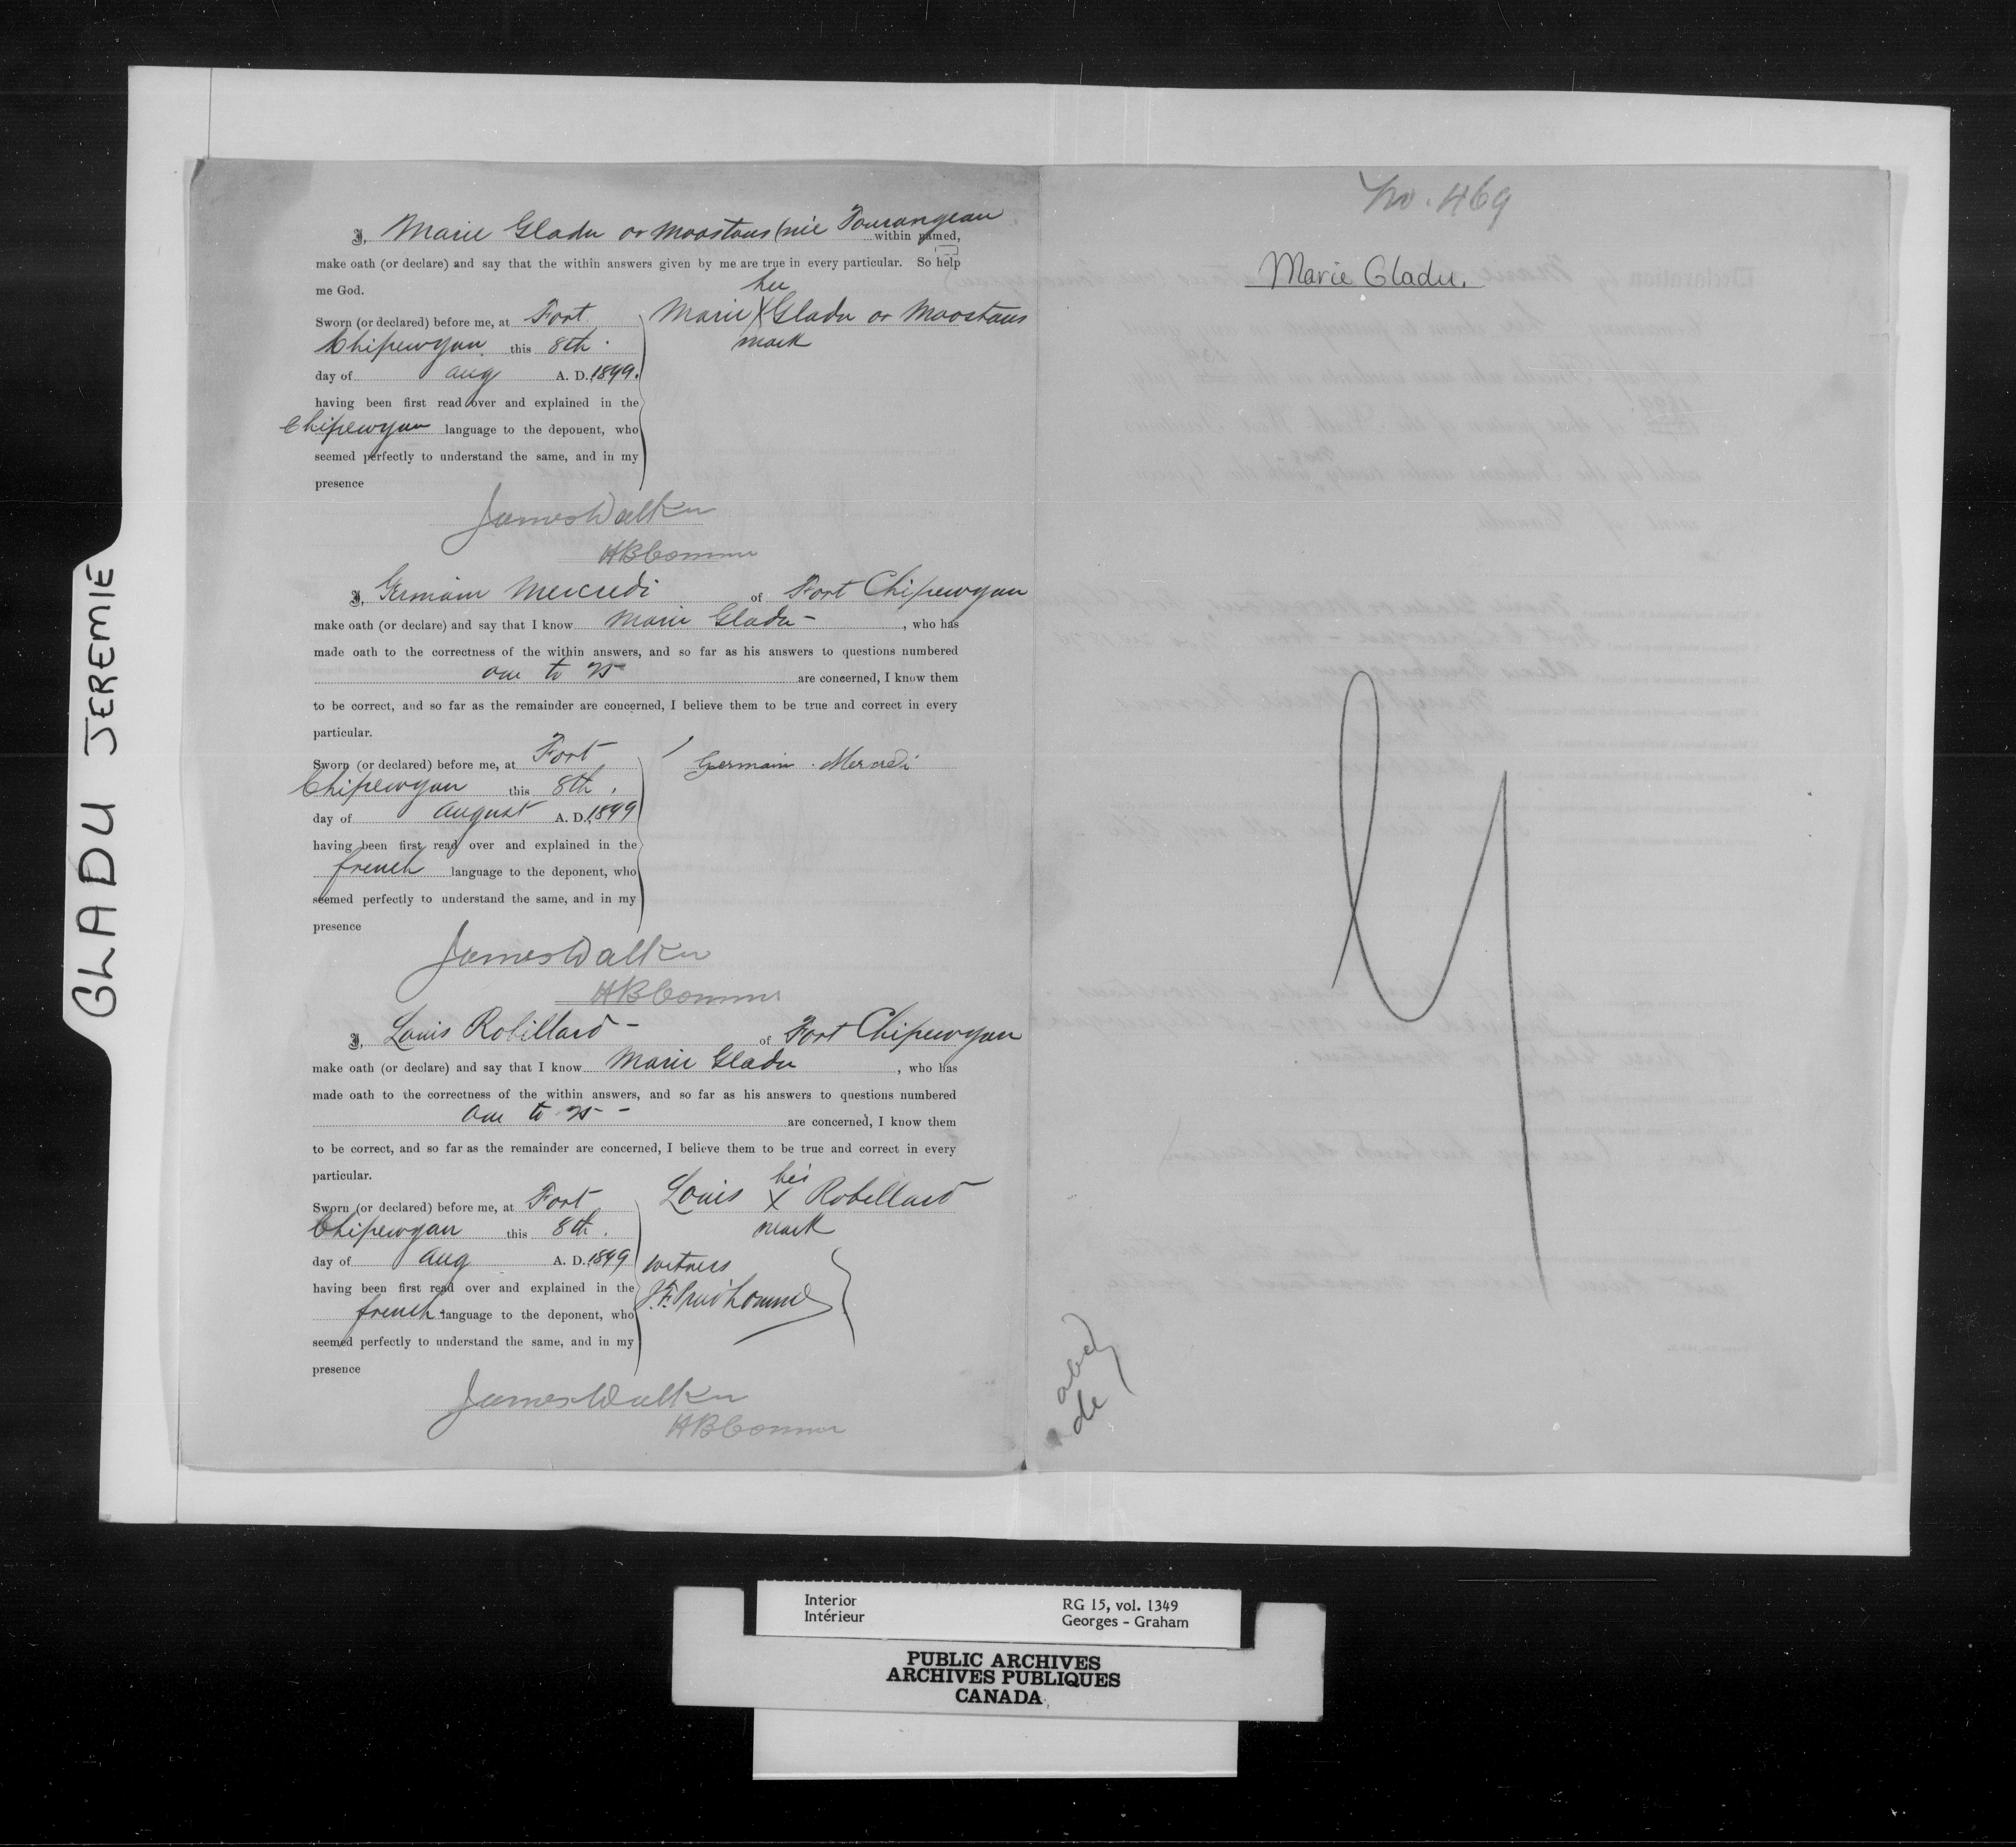 GLADU JEREMIE
I, Marie Gladu or Moostous (née Tourangeau within named,
make oath (or declare) and say that the within answers given by me are true in every particular. So help
me God.
her
Sworn (or declared) before me, at Fort Marie X Gladu or Moostous
Chipewyan this 8th mark
day of Aug A. D. 1899.
having been first read over and explained in the
Chipewyan language to the deponent, who
seemed perfectly to understand the same, and in my
presence
James Walker
HBComr
I, Germain Mercredi of Fort Chipewyan
make oath (or declare) and say that I know Marie Gladu - , who has
made oath to the correctness of the within answers, and so far as his answers to questions numbered
one to 25 are concerned, I know them
to be correct, and so far as the remainder are concerned, I believe them to be true and correct in every
particular.
Sworn (or declared) before me, at Fort Germain Mercredi
Chipewyan this 8th
day of August A. D. 1899
having been first read over and explained in the
french language to the deponent, who
seemed perfectly to understand the same, and in my
presence
James Walker
HBComr
I, Louis Robillard - of Fort Chipewyan
make oath (or declare) and say that I know Marie Gladu , who has
made oath to the correctness of the within answers, and so far as his answers to questions numbered
one to 25 - are concerned, I know them
to be correct, and so far as the remainder are concerned, I believe them to be true and correct in every
particular.
his
Sworn (or declared) before me, at Fort Louis X Robillard
Chipewyan this 8th. mark
day of Aug A. D. 1899 witness
having been first read over and explained in the
french language to the deponent, who J.F. Prud'homme
seemed perfectly to understand the same, and in my
presence
James Walker
HBComr
No. 469
Marie Gladu.
Interior RG 15, vol. 1349
Intérieur Georges - Graham
PUBLIC ARCHIVES
ARCHIVES PUBLIQUES
CANADA